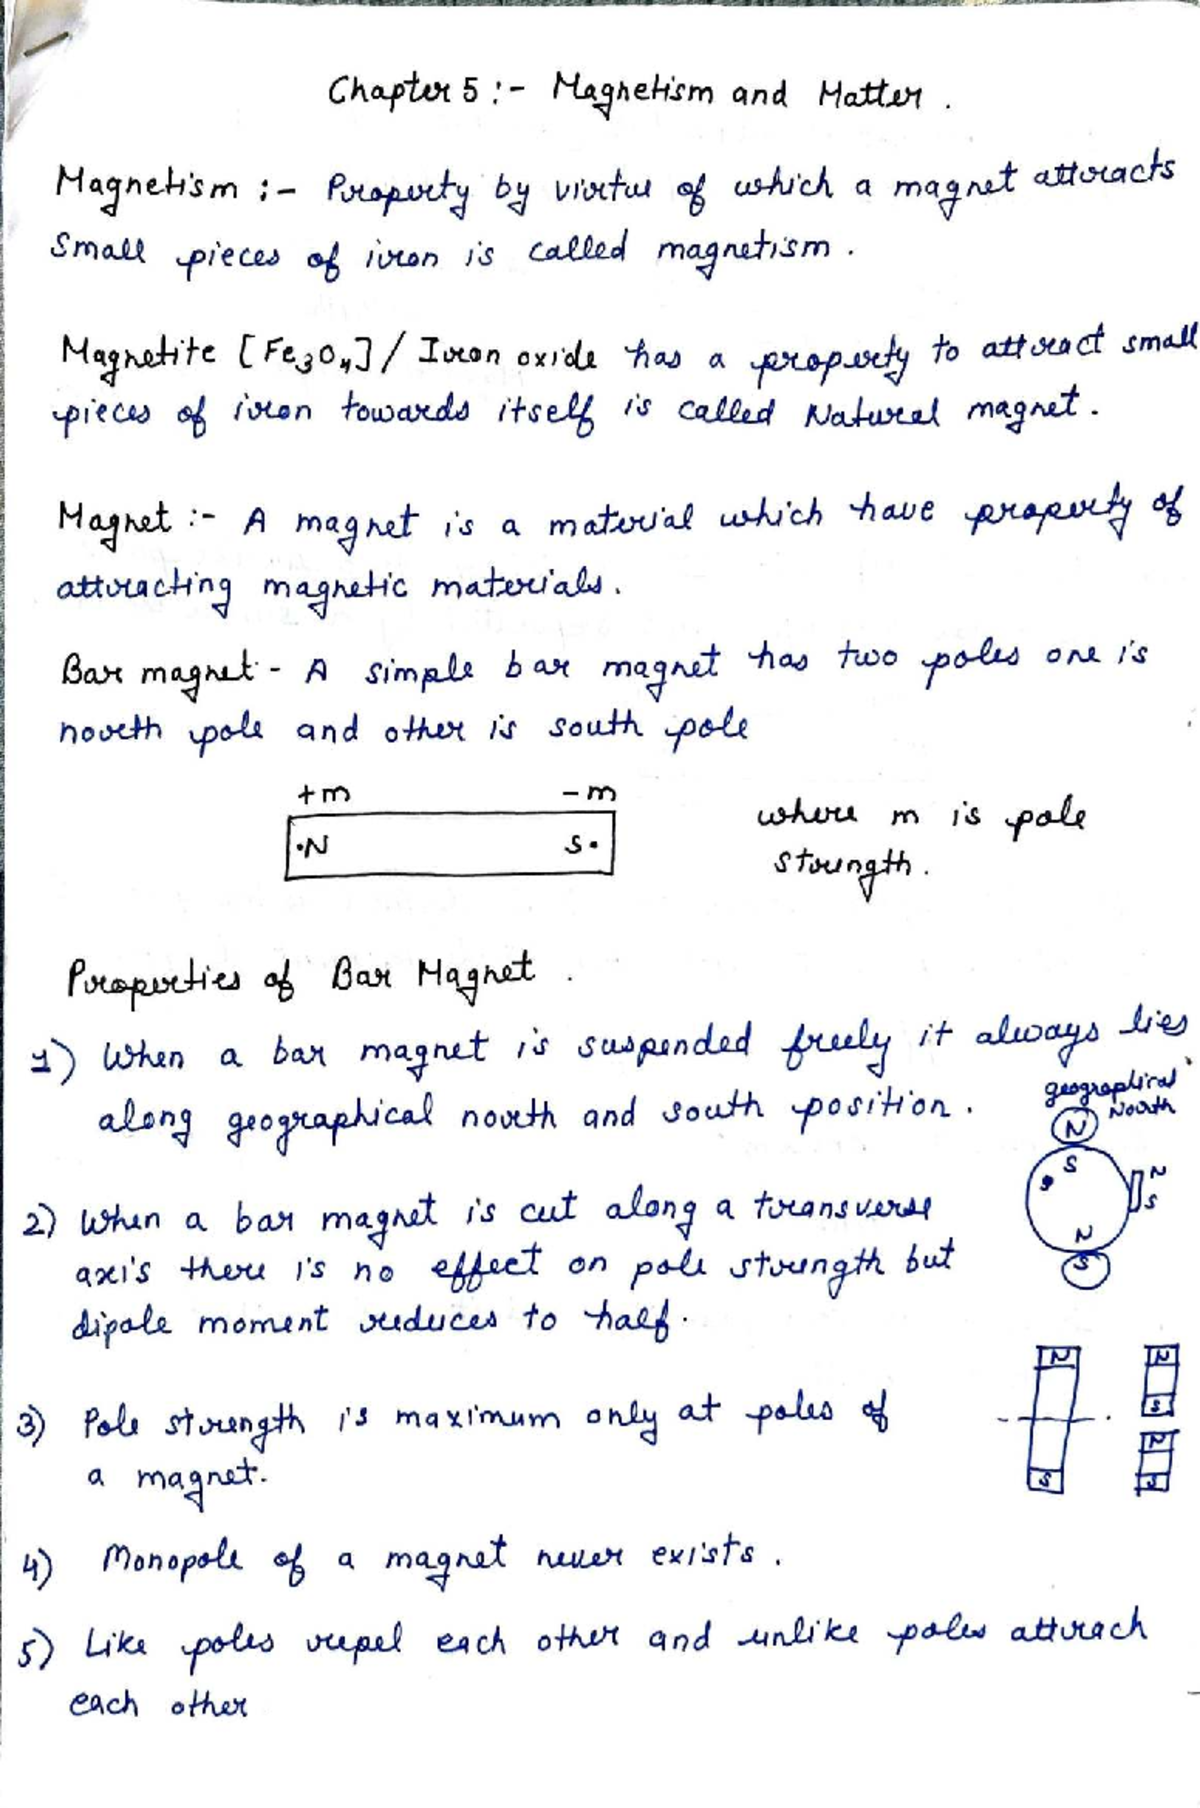 Chapter 5 :- Magnetism and Matter .
Magnetism :- Property by virtue of which a magnet attracts
small pieces of iron is called magnetism .
Magnetite [Fe₃O₄] / Iron oxide has a property to attract small
pieces of iron towards itself is called Natural magnet .
Magnet :- A magnet is a material which have property of
attracting magnetic materials .
Bar magnet - A simple bar magnet has two poles one is
north pole and other is south pole
+m -m
•N S•
where m is pole
strength .
Properties of Bar Magnet .
1) When a bar magnet is suspended freely it always lies
along geographical north and south position .
geographical
North
N
S
N
S
N
S
2) When a bar magnet is cut along a transverse
axis there is no effect on pole strength but
dipole moment reduces to half .
N N
S
N
S S
3) Pole strength is maximum only at poles of
a magnet .
4) Monopole of a magnet never exists .
5) Like poles repel each other and unlike poles attrach
each other